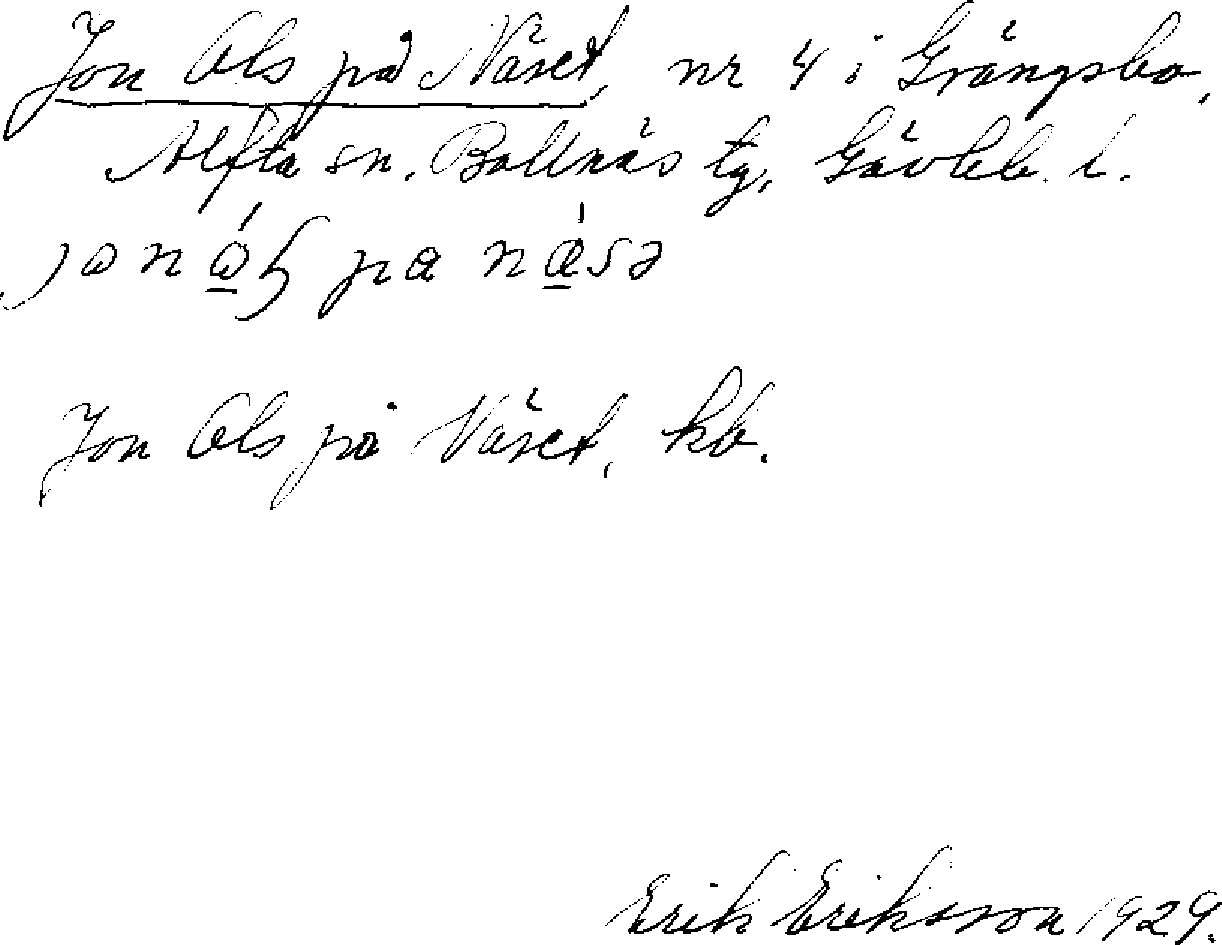 Jon Ols på Näset, nr 4 i Grängsbo,
Alfta sn. Bollnäs tg, Gävleb. l.
pa
Jon Ols på Näset, kb.
Erik Eriksson 1929.